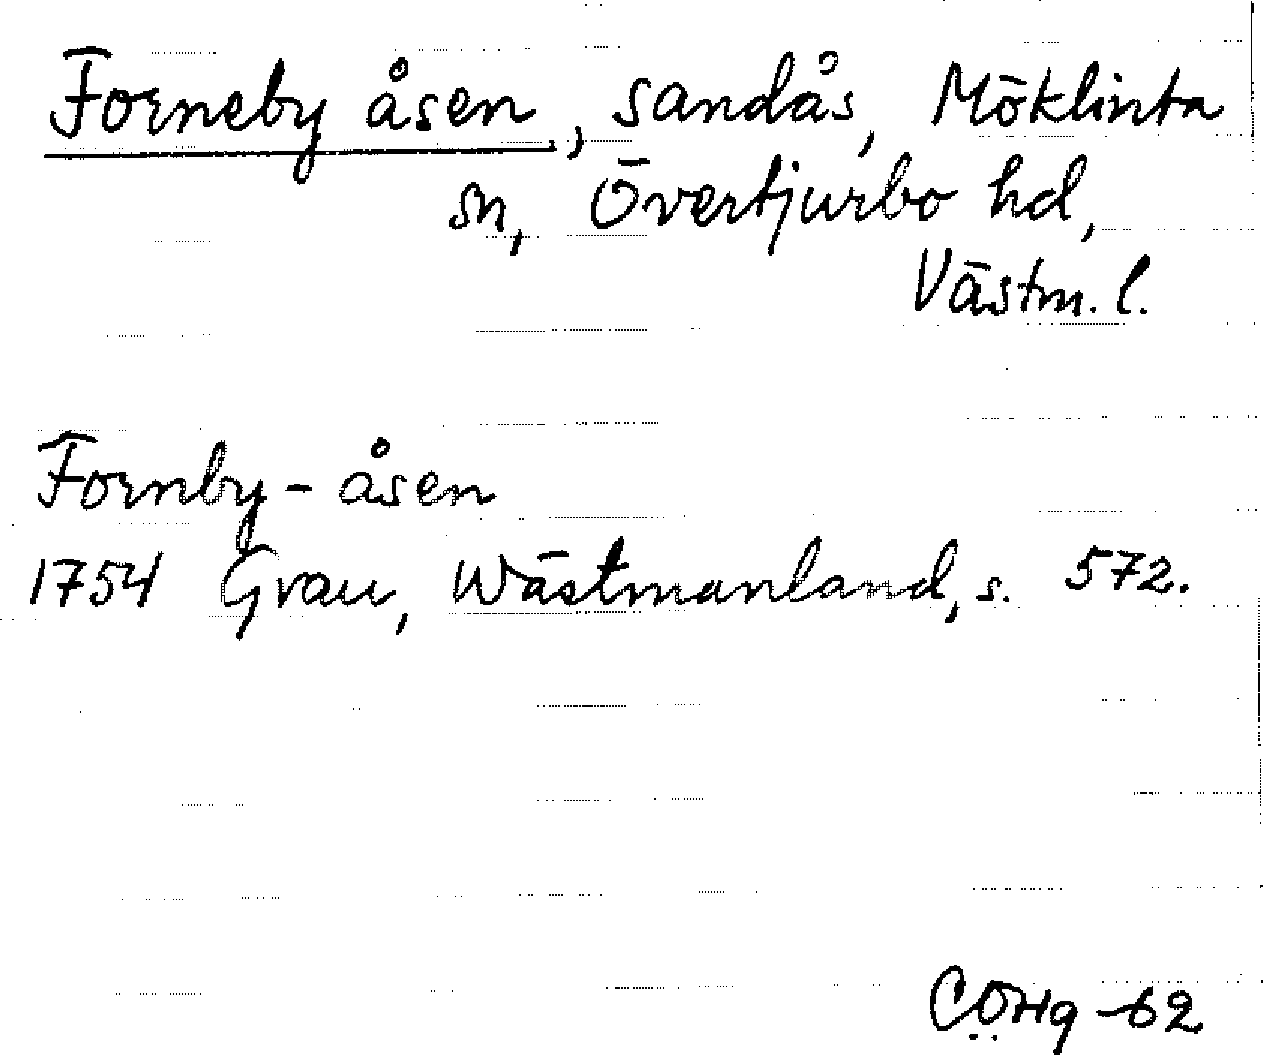 Forneby åsen, sandås, Möklinta
sn, Övertjurbo hd,
Västm. l.
Fornby-åsen
1754 Grau, Wästmanland, s. 572.
-62